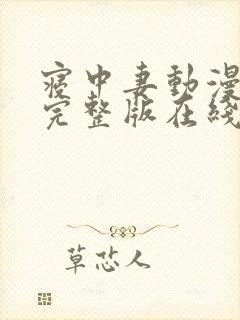 寝中妻動漫
完整版在綫
草芯人